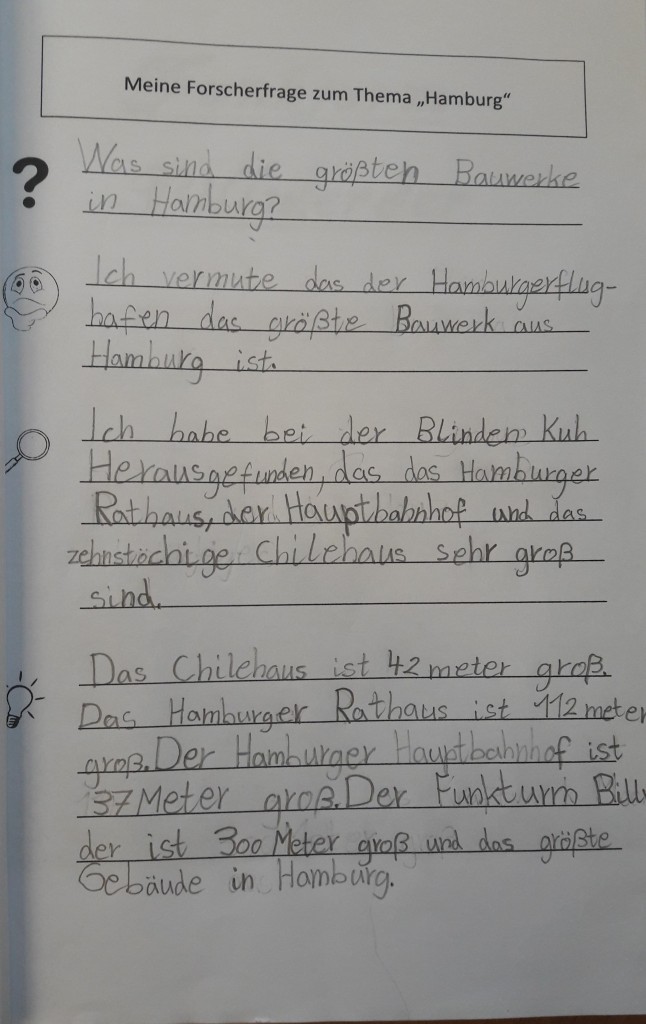 Meine Forscherfrage zum Thema „Hamburg“
?
Was sind die größten Bauwerke
in Hamburg?
Ich vermute das der Hamburgerflug-
hafen das größte Bauwerk aus
Hamburg ist.
Ich habe bei der Blinden Kuh
Herausgefunden, das das Hamburger
Rathaus, der Hauptbahnhof und das
zehnstöchige Chilehaus sehr groß
sind.
Das Chilehaus ist 42 meter groß.
Das Hamburger Rathaus ist 112 meter
groß. Der Hamburger Hauptbahnhof ist
37 Meter groß. Der Funkturm Bill
der ist 300 Meter groß und das größte
Gebäude in Hamburg.